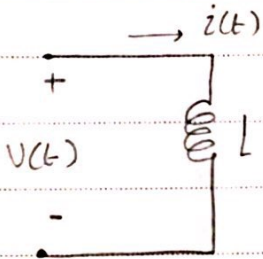 → i(t)
+
V(t)
L
-